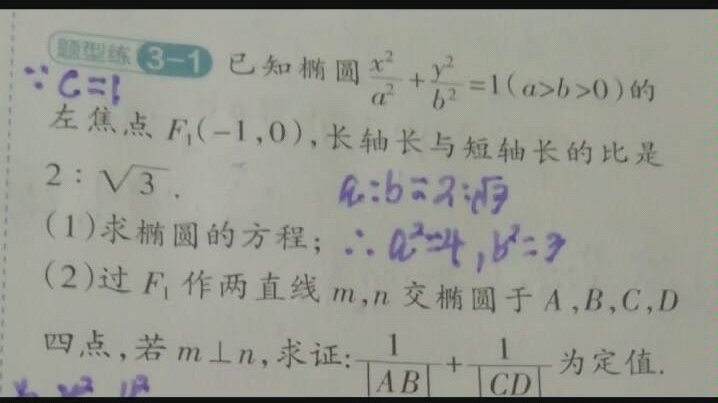 题型练 3-1 已知椭圆 x²/a² + y²/b² =1(a>b>0)的
∵ C=1
左焦点 F₁(-1,0),长轴长与短轴长的比是
2:√3.
a:b=2:√3
(1)求椭圆的方程;
∴ a²=4, b²=3
(2)过 F₁ 作两直线 m,n 交椭圆于 A,B,C,D
四点,若 m⊥n,求证: 1/|AB| + 1/|CD| 为定值.